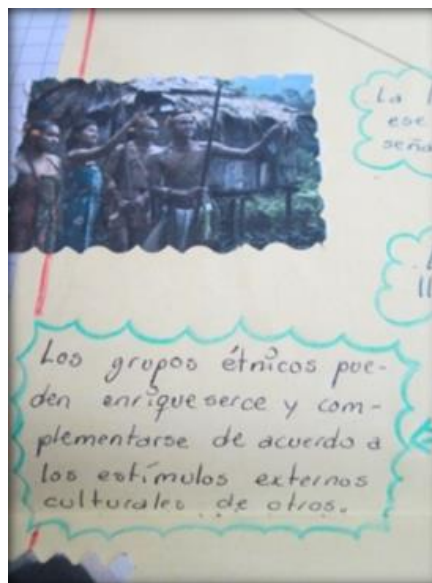 La
ese
seña
Los grupos étnicos pue-
den enriqueserce y com-
plementarse de acuerdo a
los estímulos externos
culturales de otros.